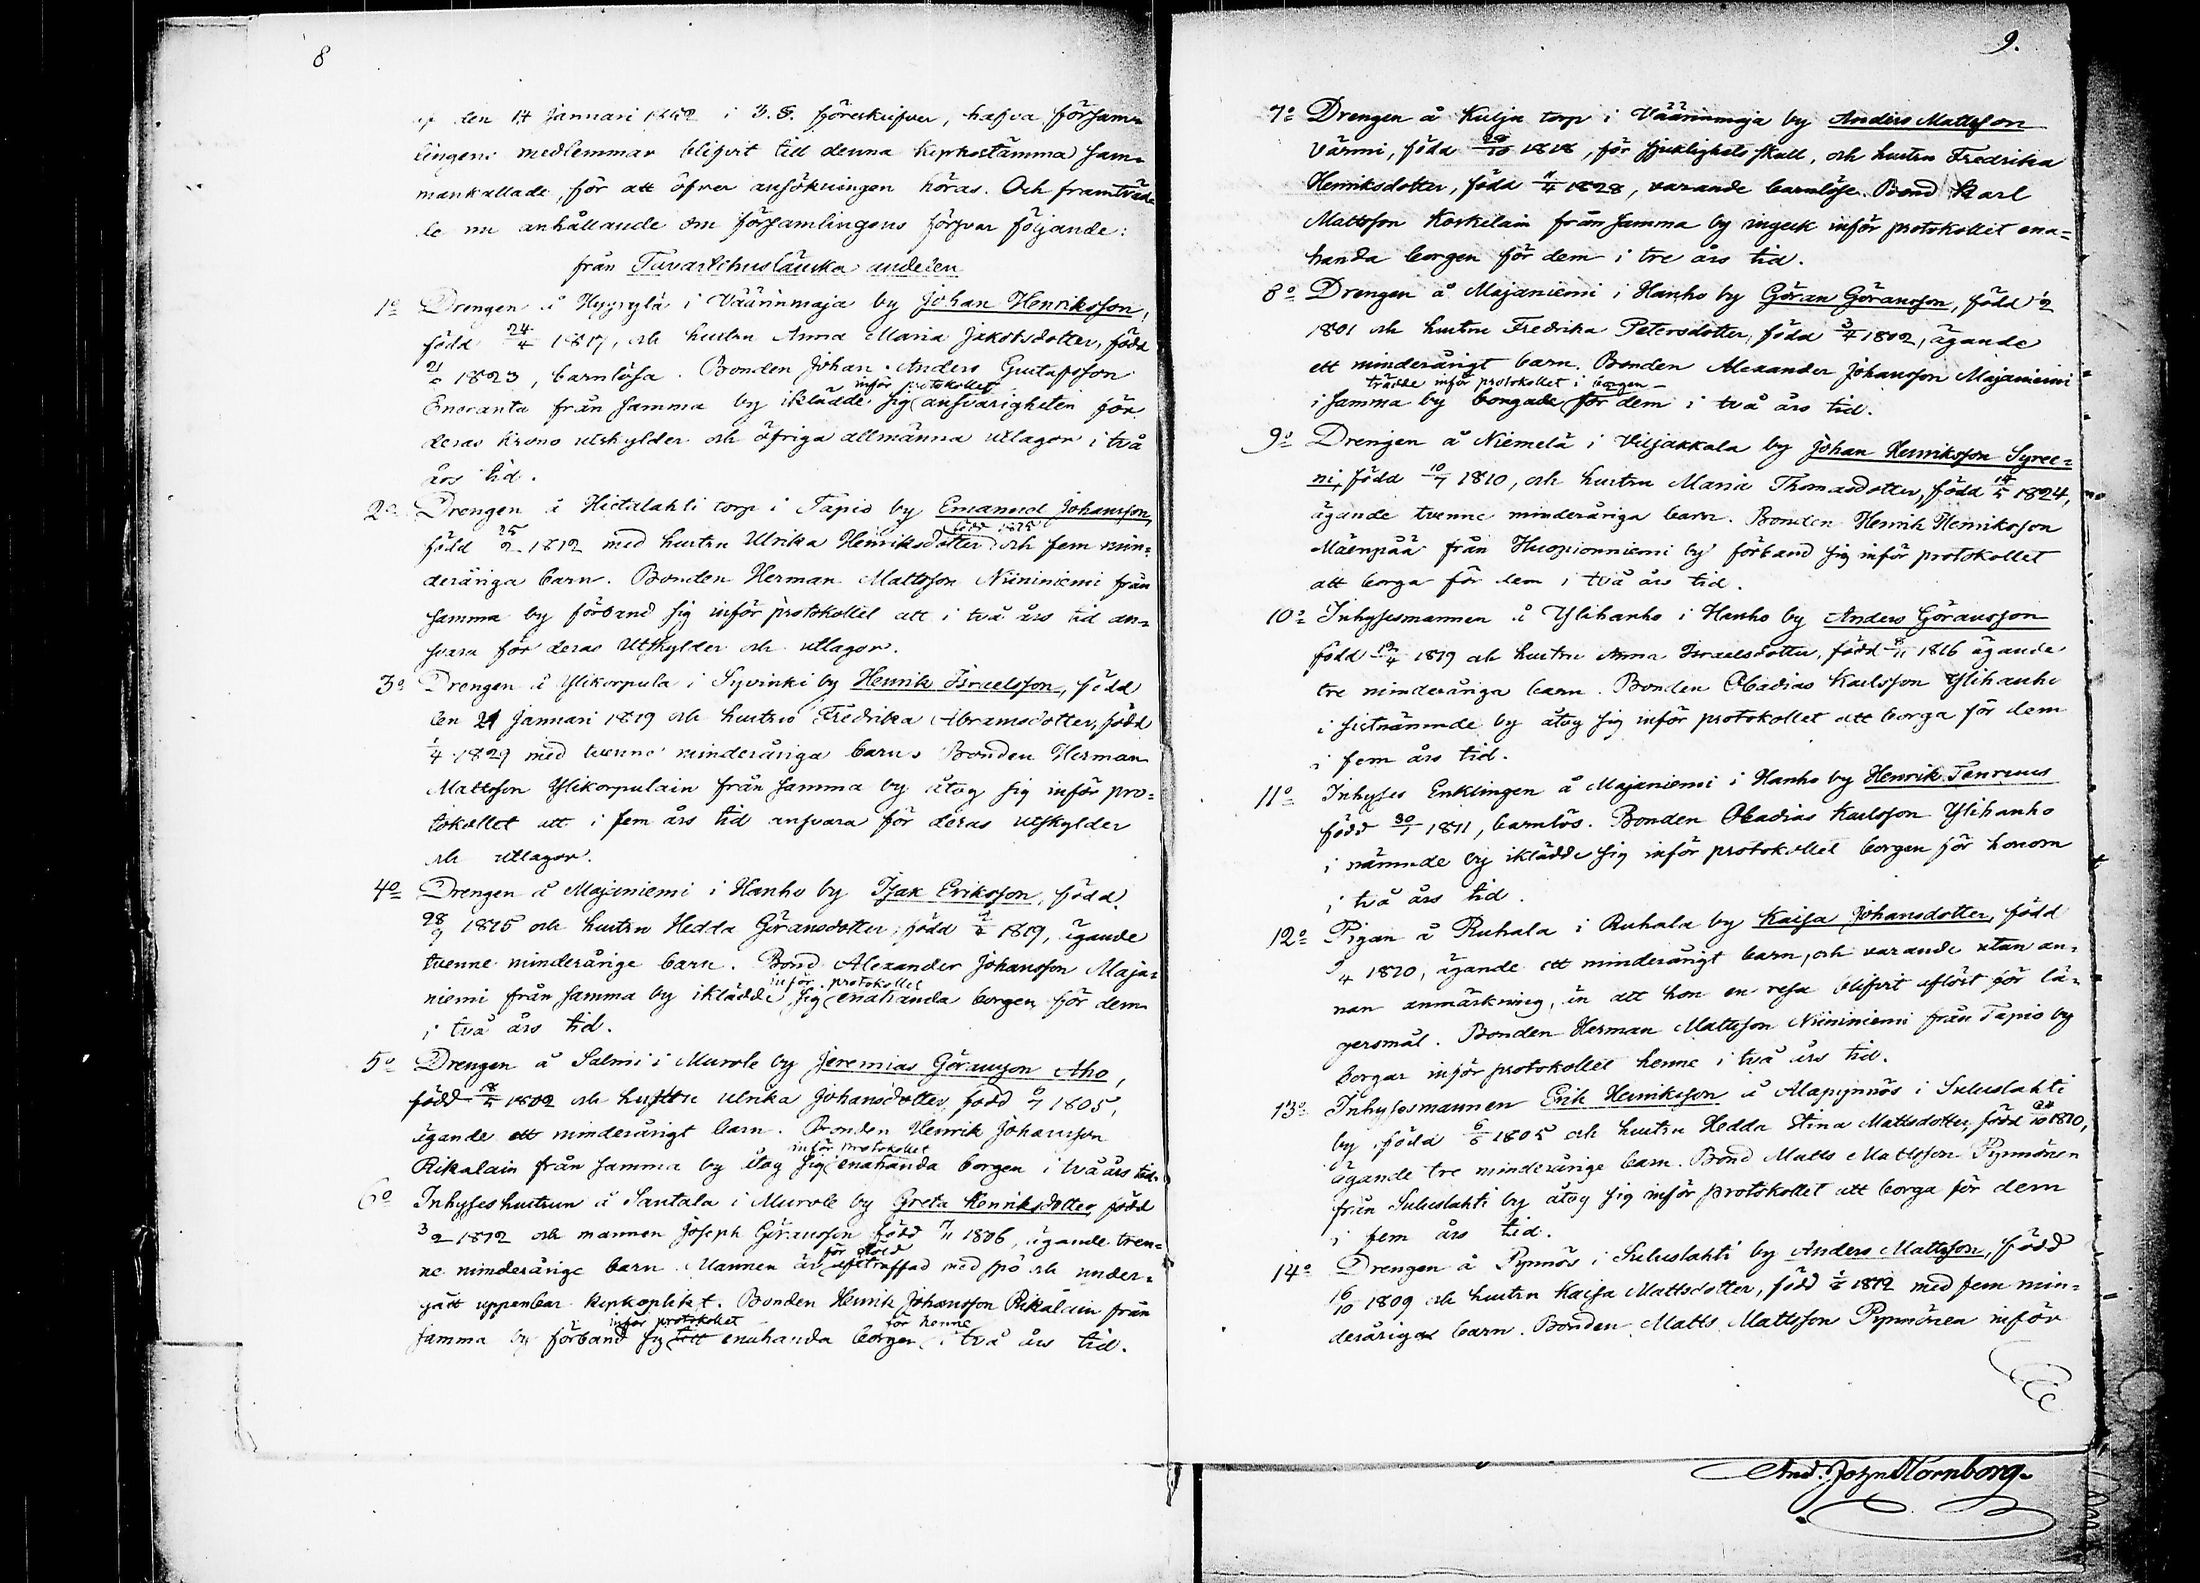 8
den 14 Januari 1852 i 3. §. föreskrifver, hafva försam-
lingens medlemmar blifvit till denna kyrkostämma sam-
mankallade, för att öfver ansökningen höras. Och framträd-
de nu anhållande om församlingens försvar följande:
från Tavastehusländska andelen
1o Drengen å Hyyrylä i Väärinmaja by Johan Henriksson,
född 24/4 1817, och hustru Anna Maria Jakobsdotter, född
1823, barnlösa. Bonden Johan Anders Gustafsson
inför protokollet
Enoranta från samma by iklädde sig ansvarigheten för
deras krono utskylder och öfriga allmänna utlagor i två
års tid.
2o Drengen å Hietalahti torp i Tapio by Emanuel Johansson,
född 1815
född 25/2 1812 med hustru Ulrika Henriksdotter och fem min-
deråriga barn. Bonden Herman Mattsson Niininiemi från
samma by förband sig inför protokollet att i två års tid an-
svara för deras utskylder och utlagor.
3o Drengen å Ylikorpula i Syvinki by Henrik Israelsson, född
den 21 Januari 1819 och hustru Fredrika Abramsdotter, född
1/4 1829 med tvenne minderåriga barn. Bonden Herman
Mattsson Ylikorpulain från samma by åtog sig inför pro-
tokollet att i fem års tid ansvara för deras utskylder
och utlagor.
4o Drengen å Majaniemi i Hanho by Isak Eriksson, född
28/9 1815 och hustru Hedda Göransdotter, född 1819, ägande
tvenne minderårige barn. Bond Alexander Johansson Maja-
inför protokollet
niemi från samma by iklädde sig enahanda borgen för dem
i två års tid.
5o Drengen å Salmi i Murole by Jeremias Göransson Aho,
född 1802 och hustru Ulrika Johansdotter, född 1805,
ägande ett minderårigt barn. Bonden Henrik Johansson
inför protokollet
Rikalain från samma by åtog sig enahanda borgen i två års tid.
6o Inhyseshustrun å Santala i Murole by Greta Henriksdotter, född
3/2 1812 och mannen Joseph Göransson född 1806, ägande tven-
för stöld
ne minderårige barn. Mannen är afstraffad med spö och under-
gått uppenbar kyrkoplikt. Bonden Henrik Johansson Rikalain från
inför protokollet för henne
samma by förband sig till enahanda borgen i två års tid.
9.
7o Drengen å Kulju torp i Väärinmaja by Anders Mattsson
Värmi, född 1818, för sjuklighets skull, och hustru Fredrika
Henriksdotter, född 1828, varande barnlöse. Bond Karl
Mattsson Koskelain från samma by ingeck inför protokollet ena-
handa borgen för dem i tre års tid.
8o Drengen å Majaniemi i Hanho by Göran Göransson, född
1801 och hustru Fredrika Petersdotter, född 3/4 1802, ägande
ett minderårigt barn. Bonden Alexander Johansson Majaniemi
trädde inför protokollet i borgen
i samma by borgade för dem i två års tid.
9o Drengen å Niemelä i Viljakkala by Johan Henriksson Syree-
ni, född 10/7 1810, och hustru Maria Thomasdotter, född 14/5 1824,
ägande tvenne minderåriga barn. Bonden Henrik Henriksson
Mäenpää från Huopionniemi by förband sig inför protokollet
att borga för dem i två års tid.
10o Inhysesmannen å Ylihanho i Hanho by Anders Göransson
född 1819 och hustru Anna Israelsdotter, född 1816 ägande
tre minderåriga barn. Bonden Obadias Karlsson Ylihanho
i sistnämnde by åtog sig inför protokollet att borga för dem
i fem års tid.
11o Inhyses Enklingen å Majaniemi i Hanho by Henrik
född 30/1 1811, barnlös. Bonden Obadias Karlsson Ylihanho
i nämnde by iklädde sig inför protokollet borgen för honom
i två års tid.
12o Pigan å Ruhala i Ruhala by Kaisa Johansdotter, född
1820, ägande ett minderårigt barn, och varande utan an-
nan anmärkning, än att hon en resa blifvit aflöst för lä-
gersmål. Bonden Herman Mattsson Niininiemi från Tapio by
borgar inför protokollet henne i två års tid.
13o Inhysesmannen Erik Henriksson å Alapynnös i Suluslahti
by, född 1805 och hustru Hedda Stina Mattsdotter, född 1810,
ägande tre minderårige barn. Bond Matts Mattsson Pynnönen
från Suluslahti by åtog sig inför protokollet att borga för dem
i fem års tid.
14o Drengen å Pynnös i Suluslahti by Anders Mattsson, född
16/10 1809 och hustru Kaisa Mattsdotter, född 1812 med fem min-
deråriga barn. Bonden Matts Mattsson Pynnönen inför
And. Joh:n Hornborg.